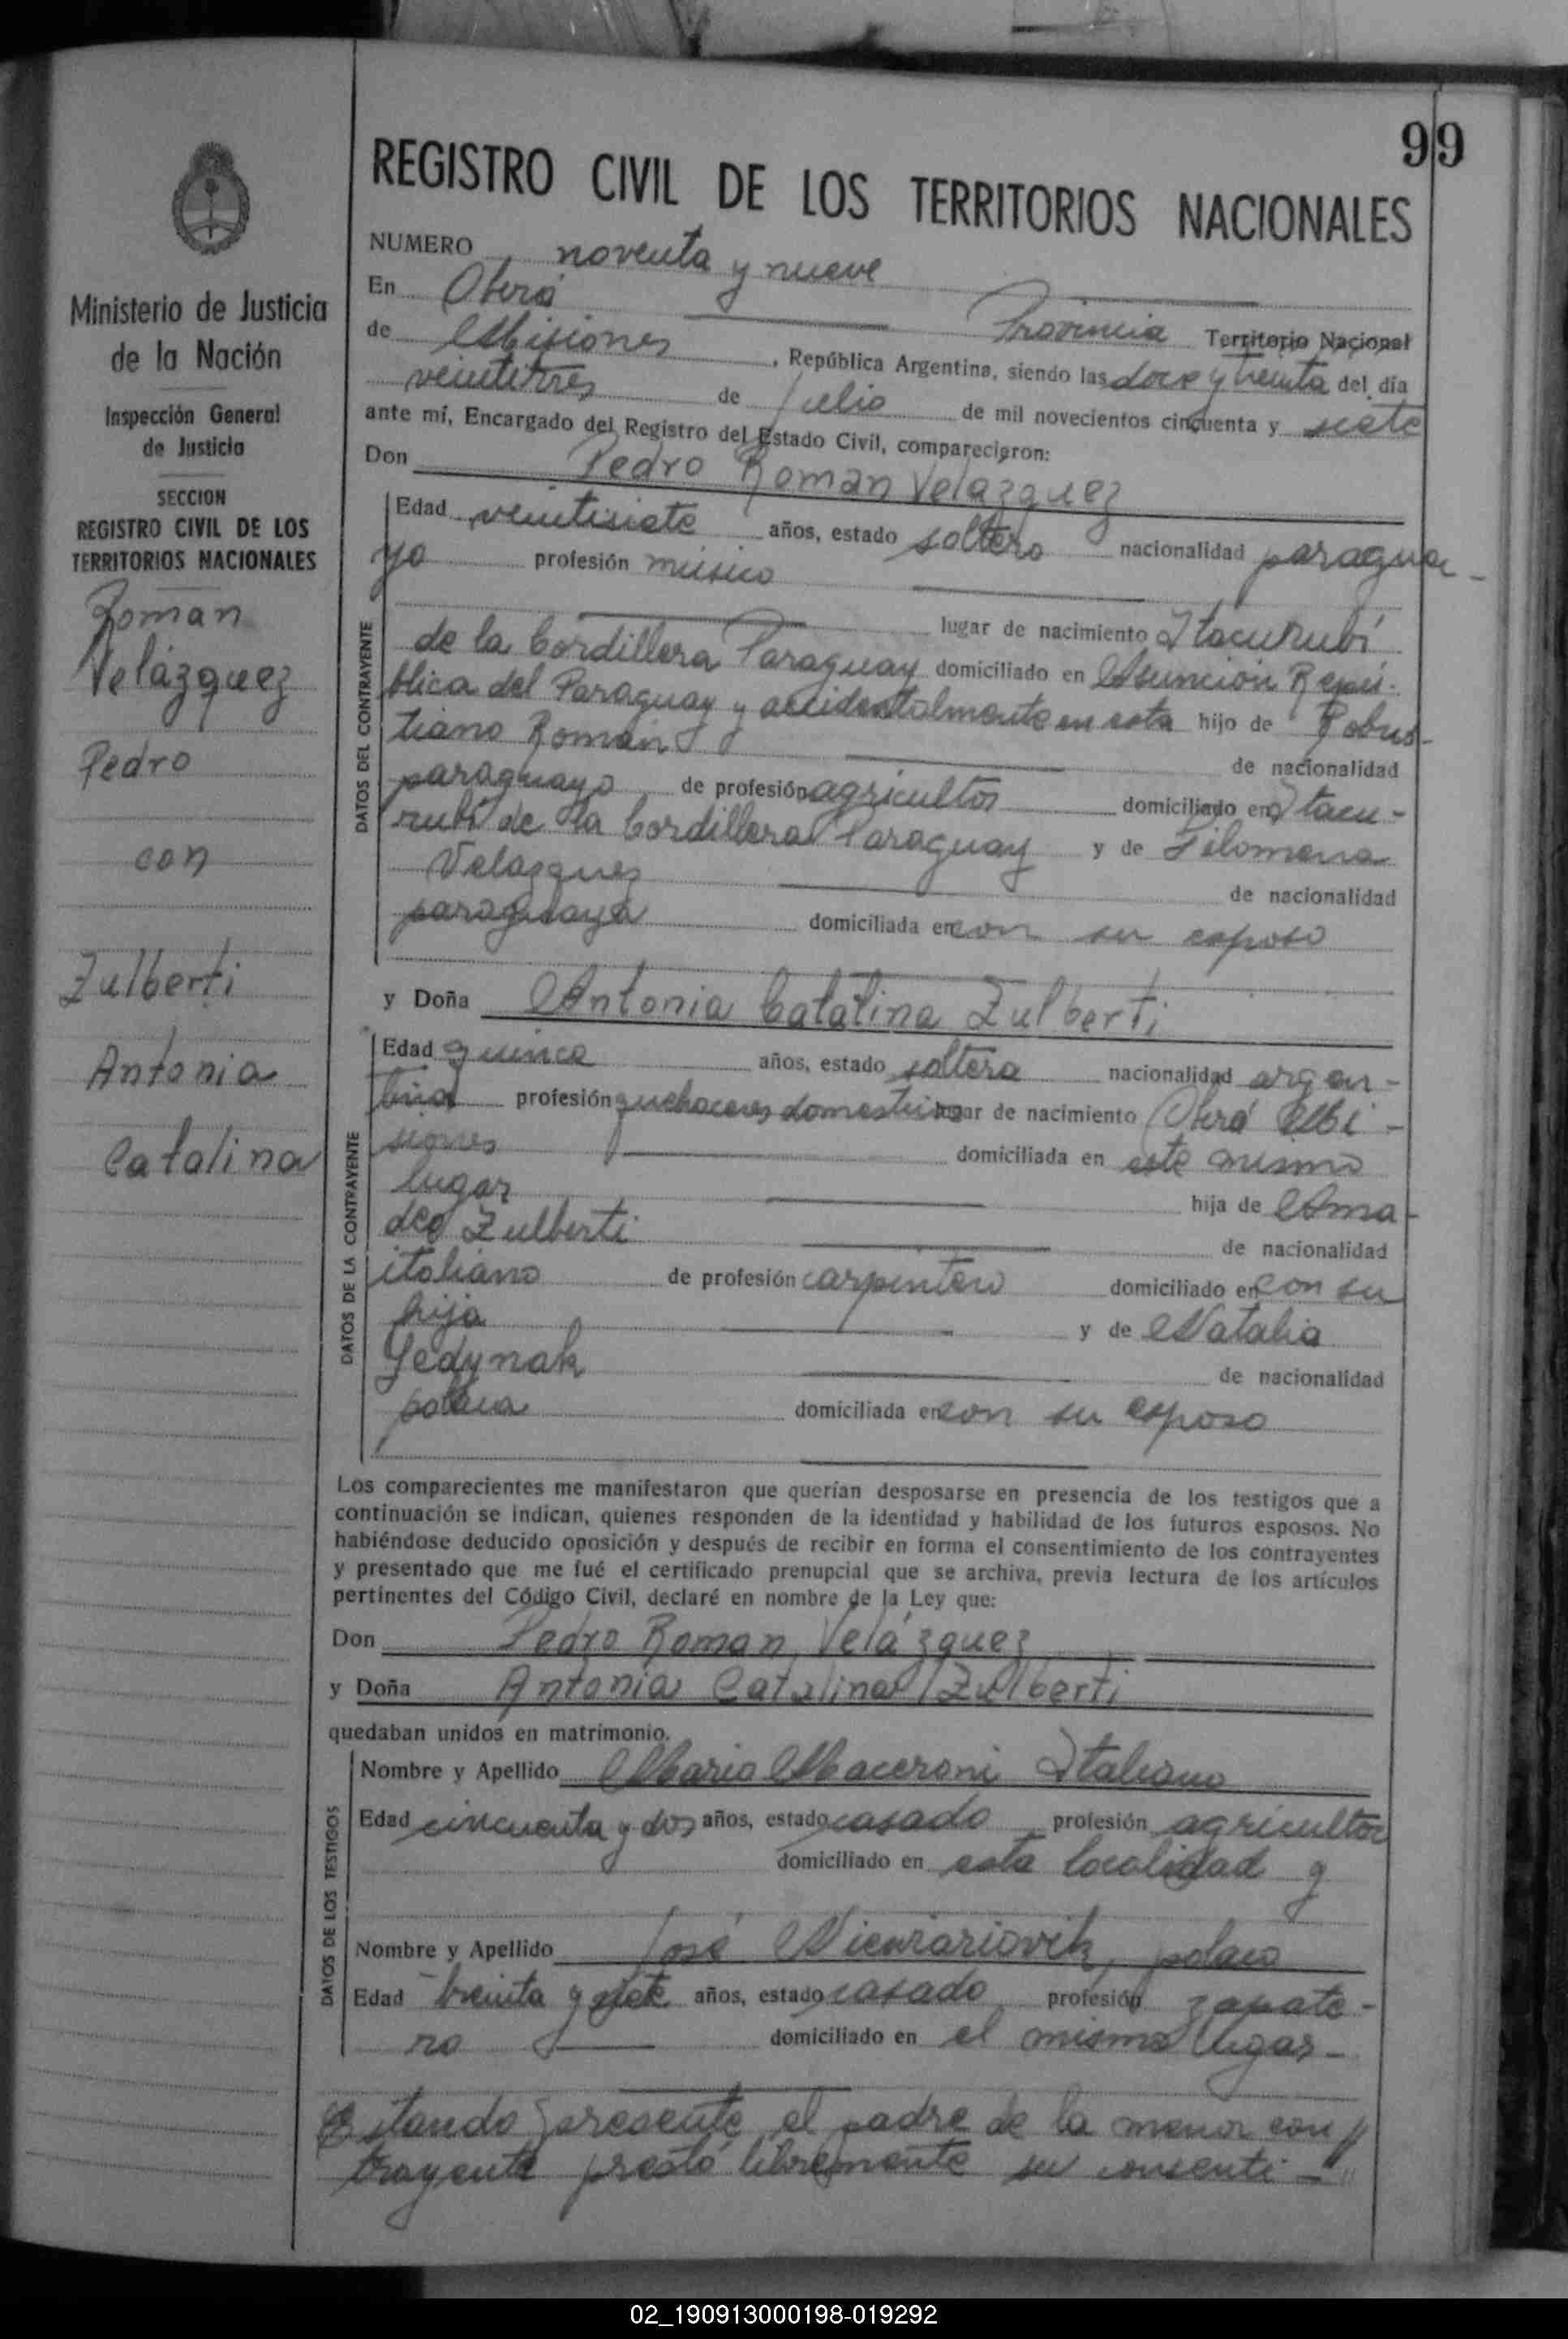 99
REGISTRO CIVIL DE LOS TERRITORIOS NACIONALES
Ministerio de Justicia
de la Nación
Inspección General
de Justicia
SECCION
REGISTRO CIVIL DE LOS
TERRITORIOS NACIONALES
Roman
Velázquez
Pedro
con
Zulberti
Antonia
Catalina
NUMERO noventa y nueve
En Oberá Provincia Territorio Nacional
de Misiones, República Argentina, siendo las doce y treinta del día
veintitres de Julio de mil novecientos cincuenta y siete
ante mí, Encargado del Registro del Estado Civil, comparecieron:
Don Pedro Roman Velazquez
DATOS DEL CONTRAYENTE
Edad veintisiete años, estado soltero nacionalidad paragua-
yo profesión músico
lugar de nacimiento Itacurubí
de la Cordillera Paraguay domiciliado en Asunción Repú-
blica del Paraguay y accidentalmente en esta hijo de Robus-
tiano Román de nacionalidad
paraguayo de profesión agricultor domiciliado en Itacu-
rubí de la Cordillera Paraguay y de Filomena
Velazquez de nacionalidad
paraguaya domiciliada en con su esposo
y Doña Antonia Catalina Zulberti
DATOS DE LA CONTRAYENTE
Edad quince años, estado soltera nacionalidad argen-
tina profesión quehaceres domesticos lugar de nacimiento Oberá Mi-
siones domiciliada en este mismo
lugar hija de Ama-
deo Zulberti de nacionalidad
italiano de profesión carpintero domiciliado en con su
hija y de Natalia
Jedynak de nacionalidad
polaca domiciliada en con su esposo
Los comparecientes me manifestaron que querían desposarse en presencia de los testigos que a
continuación se indican, quienes responden de la identidad y habilidad de los futuros esposos. No
habiéndose deducido oposición y después de recibir en forma el consentimiento de los contrayentes
y presentado que me fué el certificado prenupcial que se archiva, previa lectura de los artículos
pertinentes del Código Civil, declaré en nombre de la Ley que:
Don Pedro Roman Velázquez
y Doña Antonia Catalina Zulberti
quedaban unidos en matrimonio.
DATOS DE LOS TESTIGOS
Nombre y Apellido Mario Maceroni Italiano
Edad cincuenta y dos años, estado casado profesión agricultor
domiciliado en esta localidad y
Nombre y Apellido José polaco
Edad treinta y siete años, estado casado profesión zapate-
ro domiciliado en el mismo lugar-
Estando presente el padre de la menor con//
trayente prestó libremente su consenti-"
02_190913000198-019292